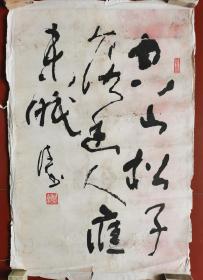 空山松子
落幽人應
未眠